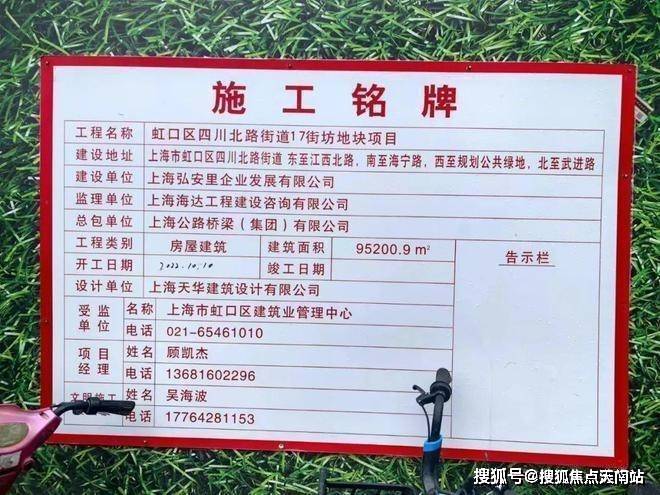 施工铭牌
工程名称 虹口区四川北路街道17街坊地块项目
建设地址 上海市虹口区四川北路街道 东至江西北路，南至海宁路，西至规划公共绿地，北至武进路
建设单位 上海弘安里企业发展有限公司
监理单位 上海海达工程建设咨询有限公司
总包单位 上海公路桥梁（集团）有限公司
工程类别 房屋建筑 建筑面积 95200.9 m²
告示栏
开工日期 2022.10.10 竣工日期
设计单位 上海天华建筑设计有限公司
受监单位 名称 上海市虹口区建筑业管理中心
电话 021-65461010
项目经理 姓名 顾凯杰
电话 13681602296
文明施工 姓名 吴海波
电话 17764281153
搜狐号@搜狐焦点天闻站